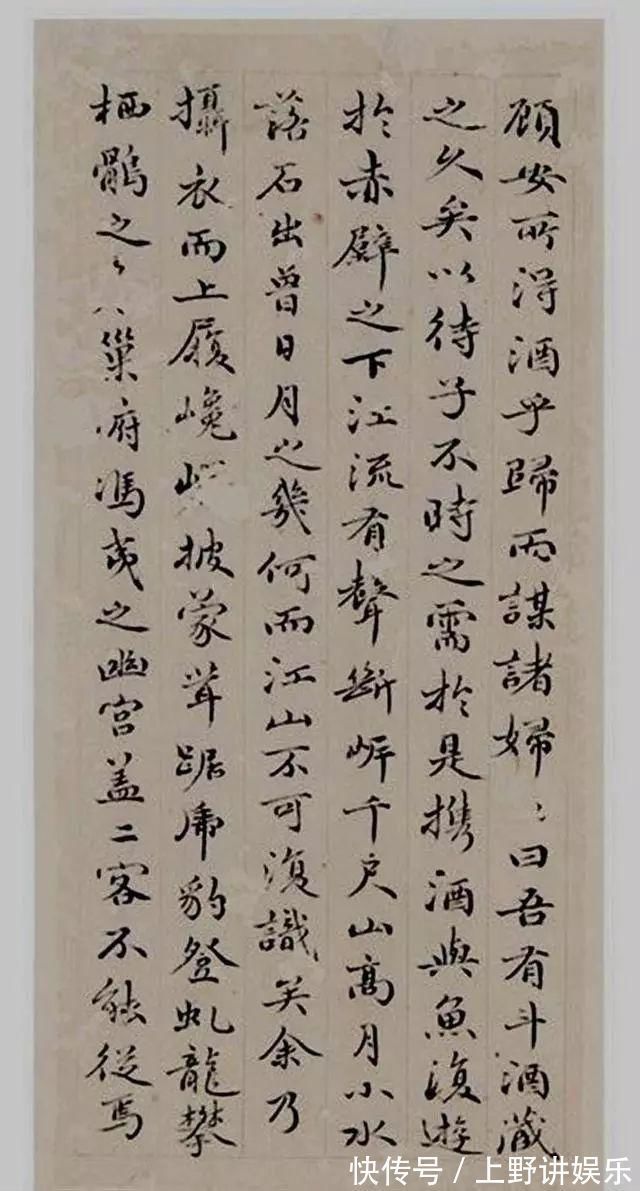 顧安所得酒乎歸而謀諸婦〻曰吾有斗酒藏
之久矣以待子不時之需於是携酒與魚復遊
於赤壁之下江流有聲斷岸千尺山高月小水
落石出曾日月之幾何而江山不可復識矣余乃
攝衣而上履巉披蒙茸踞虎豹登虬龍攀
栖鶻之巢府馮夷之幽宮盖二客不能從焉
快传号/上野讲娱乐